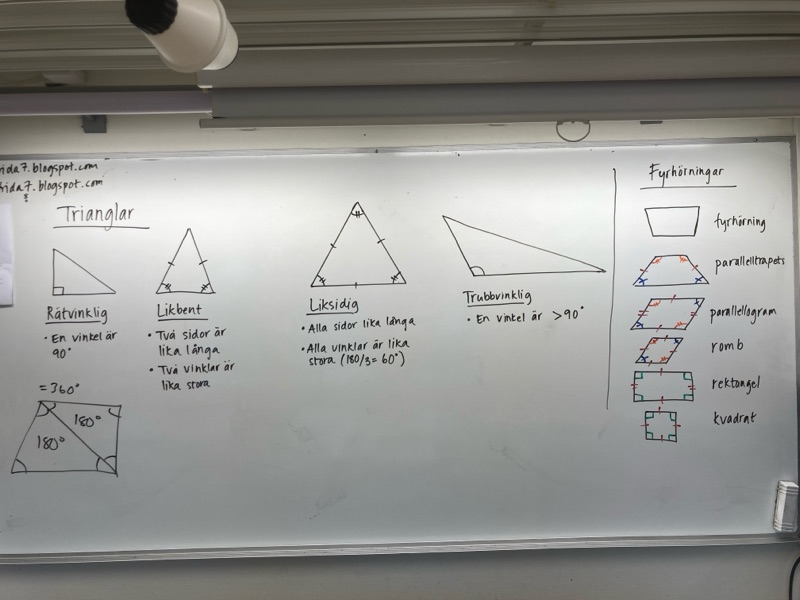 rida7.blogspot.com
rida7.blogspot.com
Trianglar
Rätvinklig
• En vinkel är
90°
Likbent
• Två sidor är
lika långa
• Två vinklar är
lika stora
Liksidig
• Alla sidor lika långa
• Alla vinklar är lika
stora (180/3=60°)
Trubbvinklig
• En vinkel är >90°
=360°
180°
180°
Fyrhörningar
fyrhörning
parallelltrapets
parallellogram
romb
rektangel
kvadrat